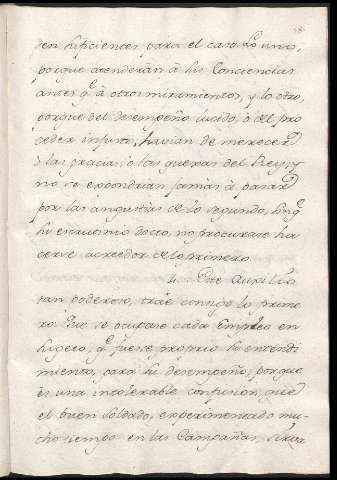 den suficientes para el caso: lo uno,
porque atenderàn à sus Conciencias
antes q.e à otros miramientos, y lo otro,
porque del desempeño lucido, ò del pro
ceder injusto, havian de merecer
ò las gracias, ò las quexas del Rey, y
no se expondrian jamàs à pasar
por las angustias de lo segundo, sin q.e
su escrutinio docto, no procurase ha
cerse acreedor de lo primero.
4. Este Auxilio
tan poderoso, trae consigo lo prime
ro: Que se ocupase cada Empleo en
sugeto, q.e fuese proprio su entendi
miento, para su desempeño, porque
es una intolerable confusion, que
el buen Soldado, experimentado mu-
cho tiempo en las Campañas, sirva